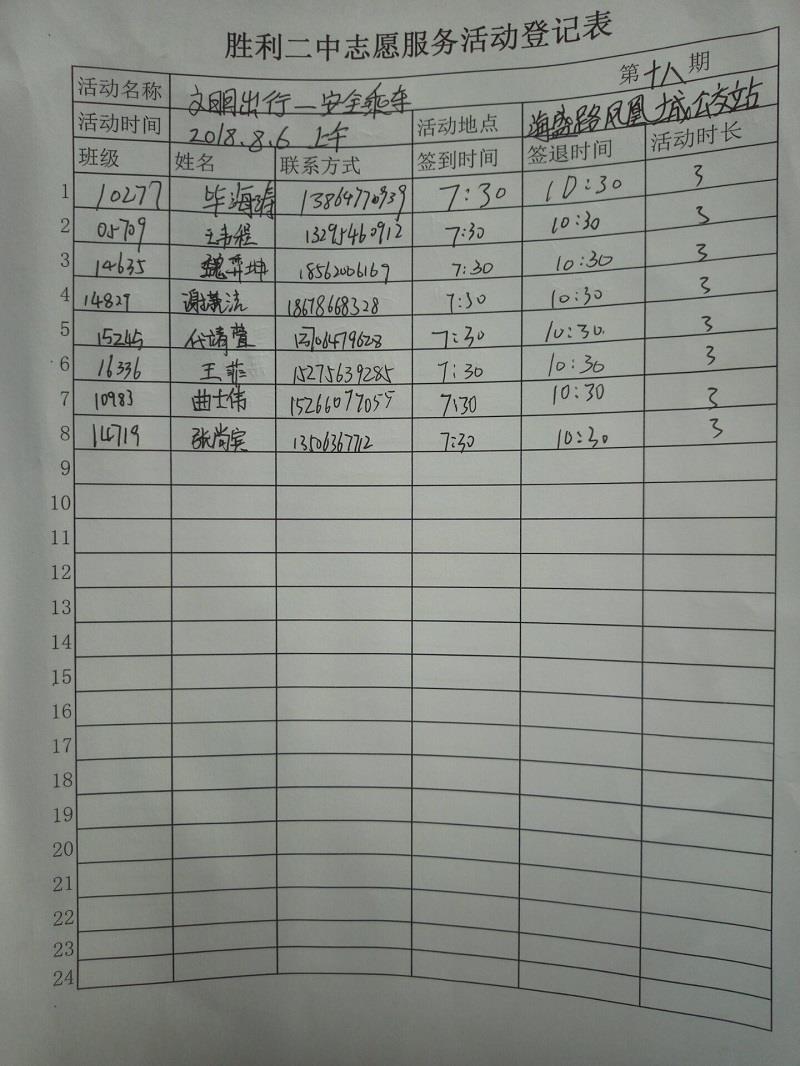 胜利二中志愿服务活动登记表
活动名称 文明出行—安全乘车 第十八期
活动时间 2018.8.6 上午 活动地点 海盛路凤凰城公交站
班级 姓名 联系方式 签到时间 签退时间 活动时长
1 10277 毕海涛 13864770939 7:30 10:30 3
2 05709 王韦程 13295460912 7:30 10:30 3
3 14635 魏弈坤 18562006169 7:30 10:30 3
4 14829 谢 18678668328 7:30 10:30 3
5 15245 代靖萱 13706479628 7:30 10:30 3
6 16336 王菲 15275639285 7:30 10:30 3
7 10983 曲士伟 15266077055 7:30 10:30 3
8 14719 张尚宾 13506367712 7:30 10:30 3
9
10
11
12
13
14
15
16
17
18
19
20
21
22
23
24